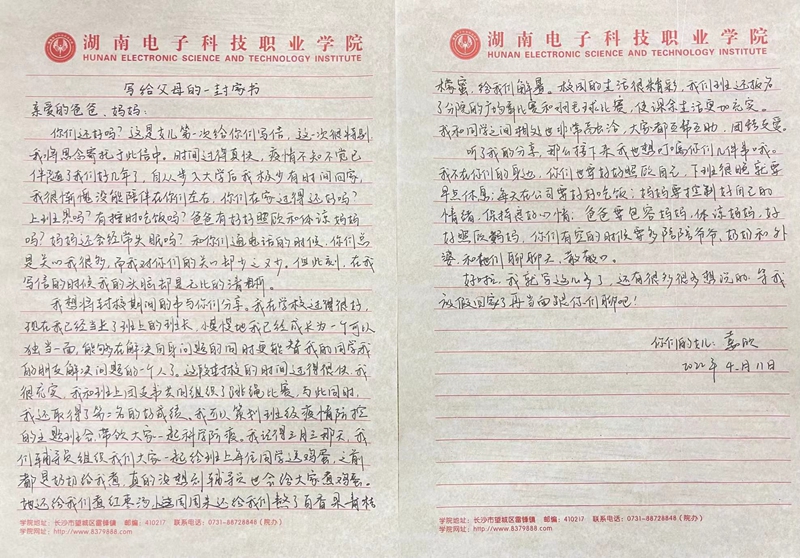 湖南电子科技职业学院
HUNAN ELECTRONIC SCIENCE AND TECHNOLOGY INSTITUTE
写给父母的一封家书
亲爱的爸爸、妈妈:
你们还好吗?这是女儿第一次给你们写信,这一次很特别
我将思念寄托于此信中。时间过得真快,疫情不知不觉已
伴随了我们好几年了,自从步入大学后我极少有时间回家,
我很惭愧没能陪伴在你们左右,你们在家过得还好吗?
上班累吗?有按时吃饭吗?爸爸有好好照顾和体谅妈妈
吗?妈妈还会经常失眠吗?和你们通电话的时候,你们总
是关心我很多,而我对你们的关心却少之又少。但此刻,在我
写信的时候我的头脑却是无比的清晰。
我想将封校期间的事与你们分享。我在学校过得很好,
现在我已经当上了班上的班长,慢慢地我已经成长为一个可以
独当一面,能够在解决自身问题的同时更能替我的同学我
的朋友解决问题的一个人了。这段封校的时间过得很快,我
很充实,我和班上团支书共同组织了跳绳比赛,与此同时,
我还取得了第二名的好成绩、我可以策划班级疫情防控
的主题班会,带领大家一起科学防疫。我记得三月三那天,我
们辅导员组织我们大家一起给班上每位同学送鸡蛋,之前
都是奶奶给我煮,真的没想到辅导员也会给大家煮鸡蛋。
她还给我们煮红枣沙,这周周末还给我们熬了百香果青桔
学院地址:长沙市望城区雷锋镇 邮编:410217 联系电话:0731-88728848(院办)
学院网址:http://www.8379888.com
湖南电子科技职业学院
HUNAN ELECTRONIC SCIENCE AND TECHNOLOGY INSTITUTE
蜂蜜,给我们解暑。校园的生活很精彩,我们班还报名
了分院的广场舞比赛和羽毛球比赛,使课余生活更加充实。
我和同学之间相处也非常融洽,大家都互帮互助,团结友爱。
听了我的分享,那么接下来我也想叮嘱你们几件事哦。
我不在你们的身边,你们也要好好照顾自己,下班很晚就要
早点休息;每天在公司要好好吃饭;妈妈要控制好自己的
情绪,保持良好心情;爸爸要包容妈妈,体谅妈妈,好
好照顾妈妈,你们有空的时候要多陪陪爷爷、奶奶和外
婆,和他们聊聊天、散散心。
好啦,我就写这么多了,还有很多很多想说的,等我
放假回家了再当面跟你们聊吧!
你们的女儿:嘉欣
2022年4月11日
学院地址:长沙市望城区雷锋镇 邮编:410217 联系电话:0731-88728848(院办)
学院网址:http://www.8379888.com